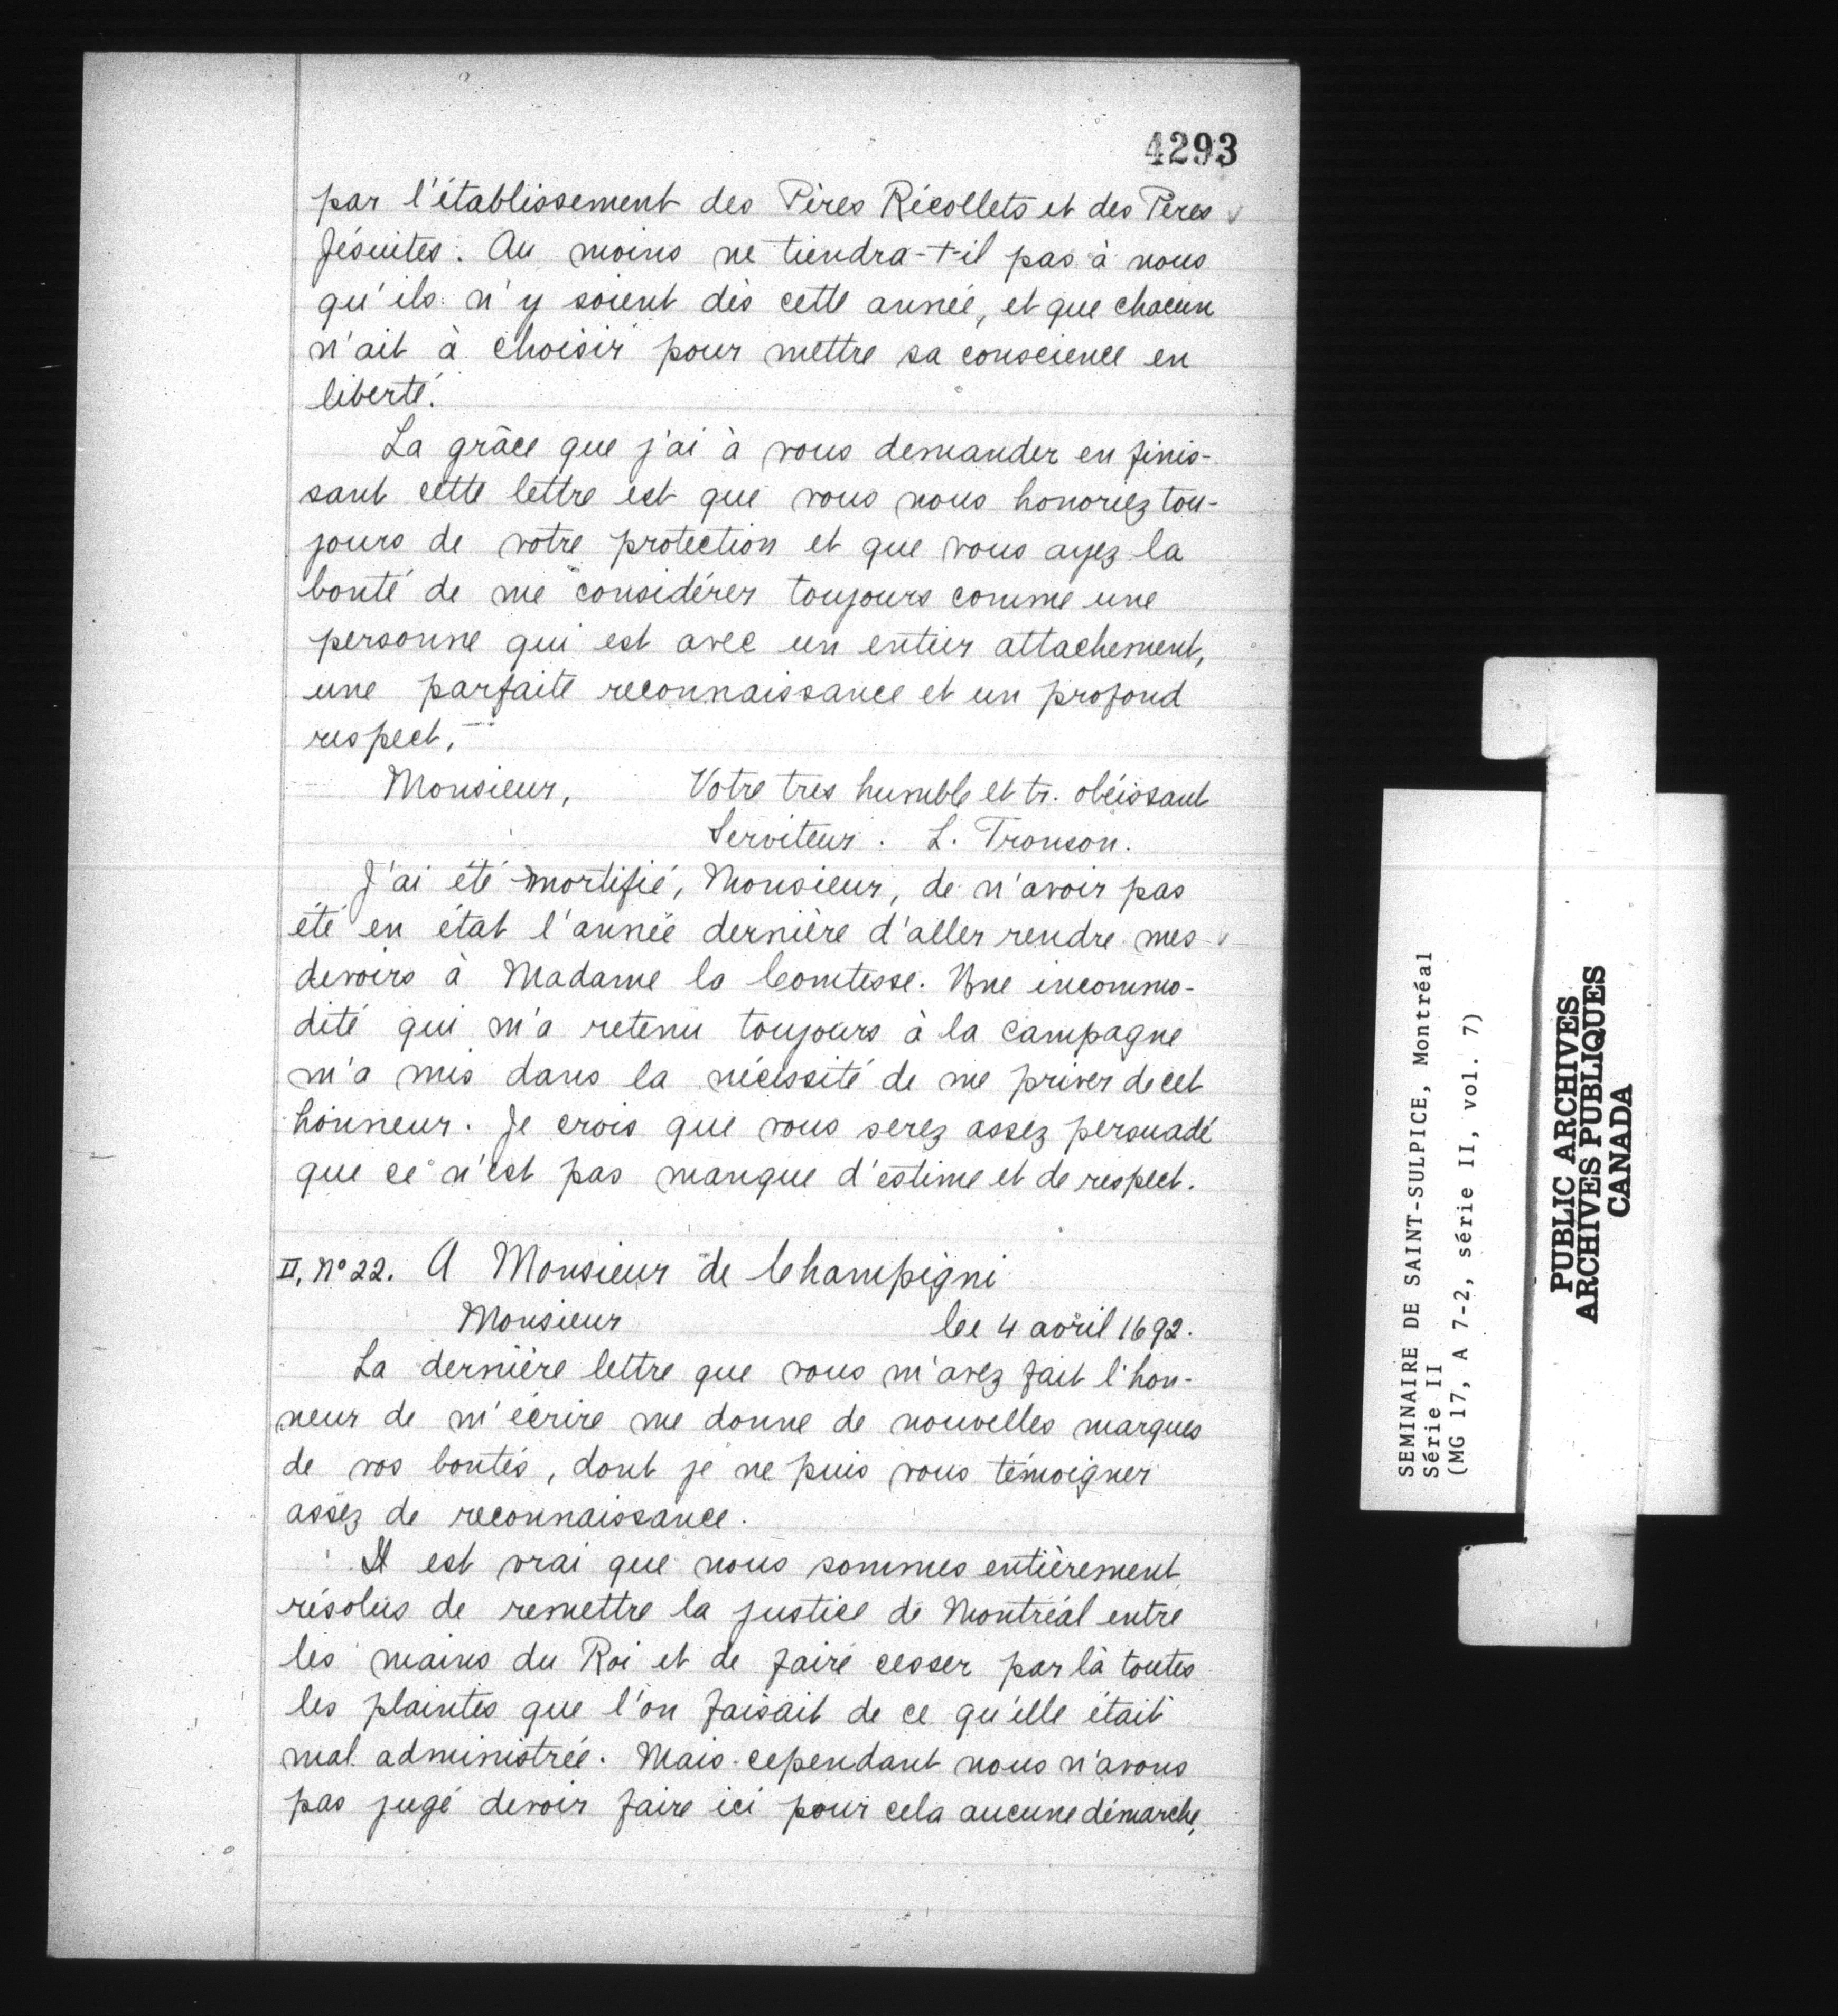 4293
par l'établissement des Pères Récollets et des Pères
Jésuites. Au moins ne tiendra-t-il pas à nous
qu'ils n'y soient dès cette année, et que chacun
n'ait à choisir pour mettre sa conscience en
liberté.
La grâce que j'ai à vous demander en finis-
sant cette lettre est que vous nous honoriez tou-
jours de votre protection et que vous ayez la
bonté de me considérer toujours comme une
personne qui est avec un entier attachement,
une parfaite reconnaissance et un profond
respect,
Monsieur, Votre très humble et tr. obéissant
Serviteur. L. Tronson.
J'ai été mortifié, Monsieur, de n'avoir pas
été en état l'année dernière d'aller rendre mes
devoirs à Madame la Comtesse. Une incommo-
dité qui m'a retenu toujours à la campagne
m'a mis dans la nécessité de me priver de cet
honneur. Je crois que vous serez assez persuadé
que ce n'est pas manque d'estime et de respect.
II, No 22. A Monsieur de Champigni
Monsieur Ce 4 avril 1692.
La dernière lettre que vous m'avez fait l'hon-
neur de m'écrire me donne de nouvelles marques
de vos bontés, dont je ne puis vous témoigner
assez de reconnaissance.
Il est vrai que nous sommes entièrement
résolus de remettre la justice de Montréal entre
les mains du Roi et de faire cesser par là toutes
les plaintes que l'on faisait de ce qu'elle était
mal administrée. Mais cependant nous n'avons
pas jugé devoir faire ici pour cela aucune démarche,
SEMINAIRE DE SAINT-SULPICE, Montréal
Série II
(MG 17, A 7-2, série II, vol. 7)
PUBLIC ARCHIVES
ARCHIVES PUBLIQUES
CANADA